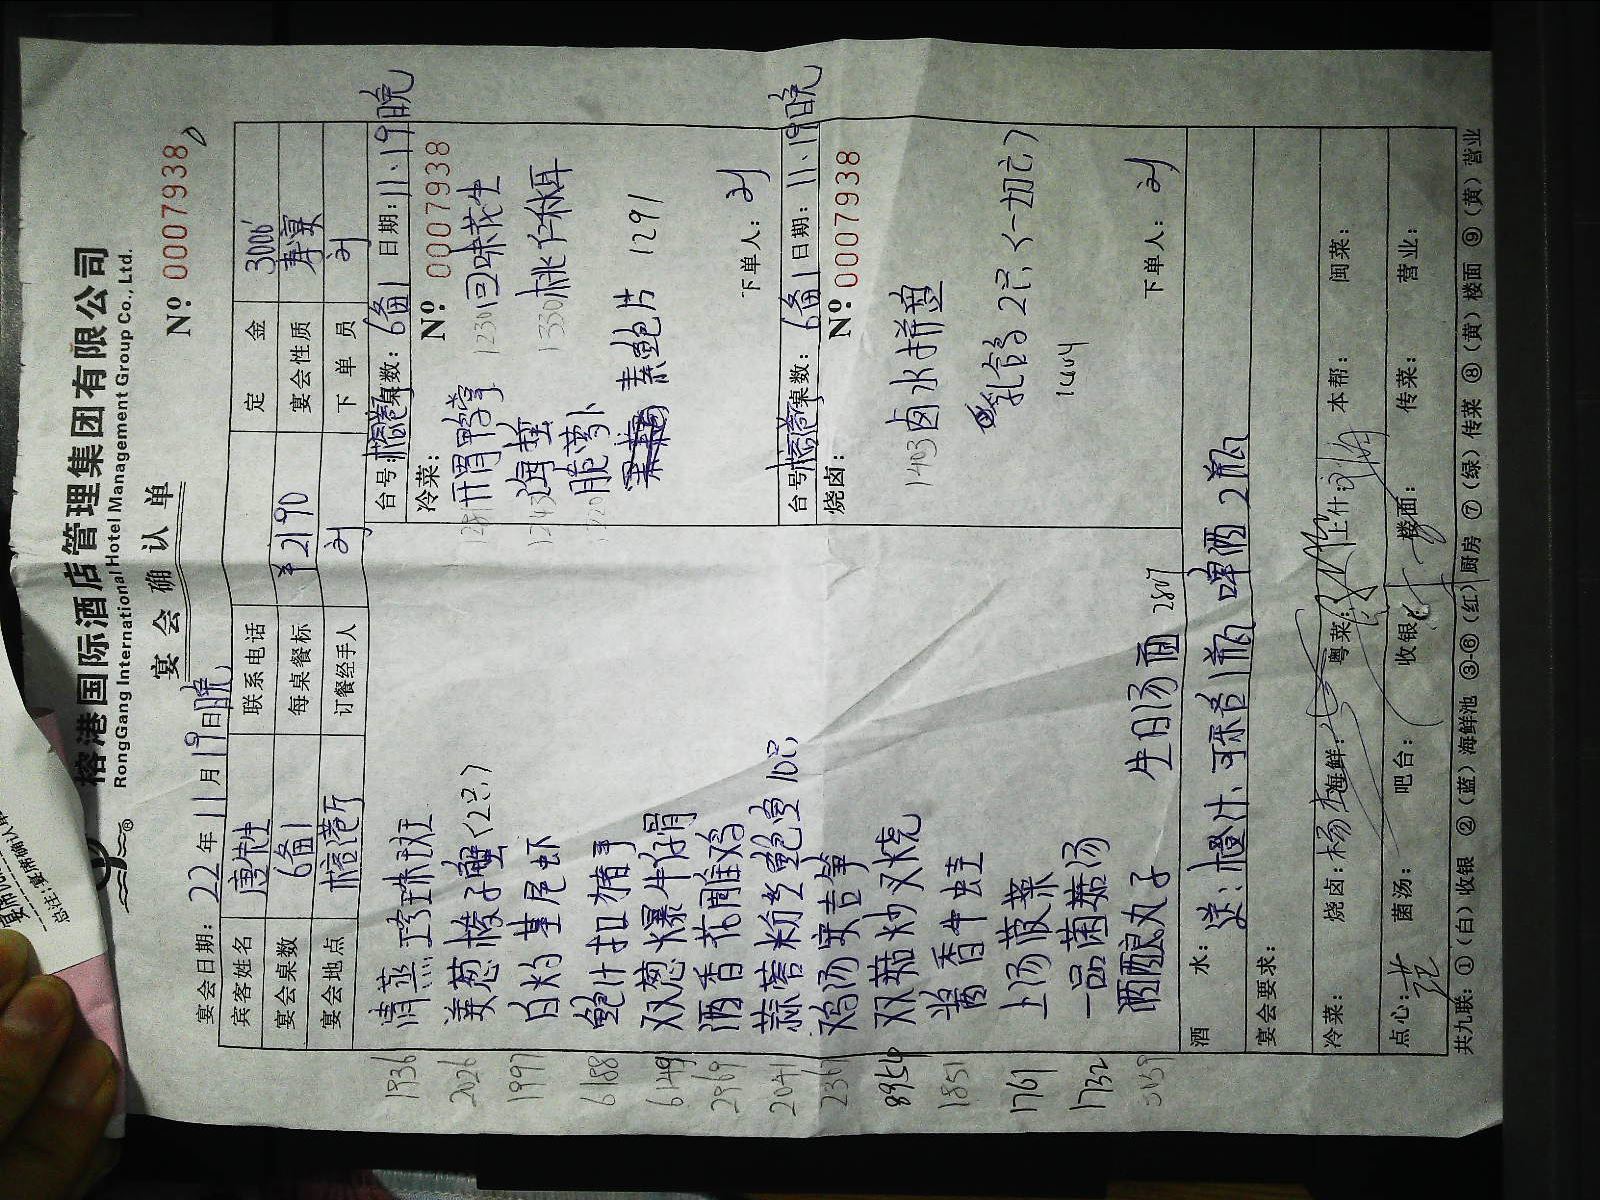 榕港国际酒店管理集团有限公司
RongGang International Hotel Management Group Co., Ltd.
宴会确认单
№ 0007938
宴会日期: 22年11月19日晚
宾客姓名 联系电话 定金 3000
宴会桌数 6备1 每桌餐标 ¥2190 宴会性质 寿宴
宴会地点 榕港厅 订餐经手人 刘 下单员 刘
1936 清蒸珍珠斑
2026 姜葱梭子蟹(2只)
1997 白灼基尾虾
6188 鲍汁扣猪手
6149 双葱爆牛仔骨
2969 酒香花雕鸡
2041 蒜蓉粉丝鲍鱼10只
2361 鸡汤
8954 双菇炒叉烧
1851 酱香牛蛙
1761 上汤菠菜
1732 一品菌菇汤
酒酿丸子
生日汤面 2807
台号: 榕港厅 桌数: 6备1 日期: 11.19晚
冷菜: № 0007938
开胃鸭掌 1230 回味花生
海蜇 1330 桃仁秋耳
脆萝卜
素鲍片 1291
下单人: 刘
台号: 榕港厅 桌数: 6备1 日期: 11.19晚
烧卤: № 0007938
1403 卤水拼盘
乳鸽2只(一切六)
下单人: 刘
酒水: 送: 橙汁、可乐各1瓶 啤酒2瓶
宴会要求:
冷菜: 烧卤: 杨 海鲜: 粤菜: 上什: 本帮: 闽菜:
点心: 菌汤: 吧台: 收银: 楼面: 传菜: 营业:
共九联: ①(白)收银 ②(蓝)海鲜池 ③-⑥(红)厨房 ⑦(绿)传菜 ⑧(黄)楼面 ⑨(黄)营业